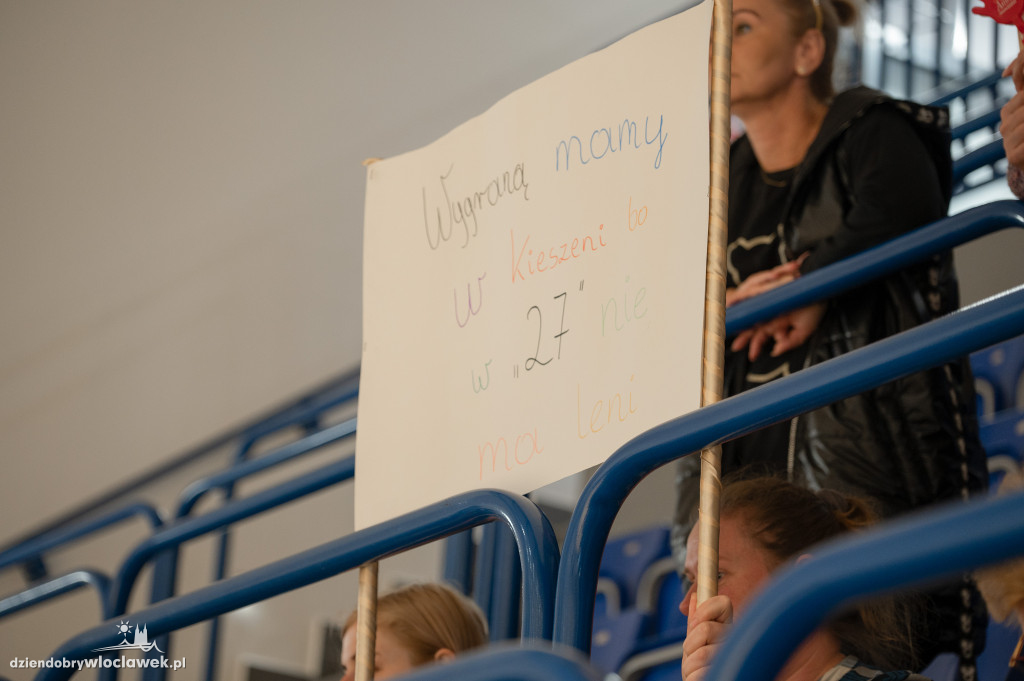 Wygraną mamy
w Kieszeni bo
w „27" nie
ma leni
dziendobrywloclawek.pl